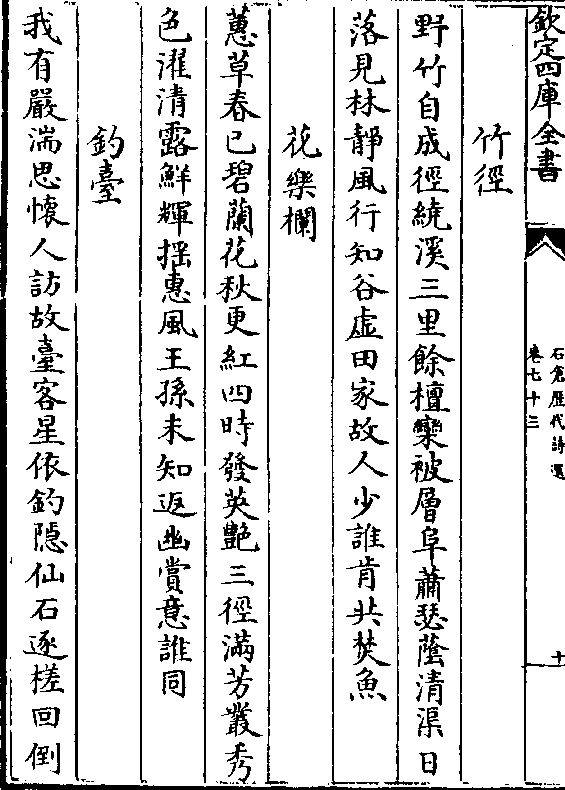 欽定四庫全書
石倉歷代詩選
卷七十三
十
竹徑
野竹自成徑繞溪三里餘檀欒被層阜蕭瑟蔭清渠日
落見林靜風行知谷虛田家故人少誰肯共焚魚
花樂欄
蕙草春已碧蘭花秋更紅四時發英艷三徑滿芳叢秀
色濯清露鮮輝揺惠風王孫未知返幽賞意誰同
釣臺
我有嚴湍思懷人訪故臺客星依釣隱仙石逐槎回倒